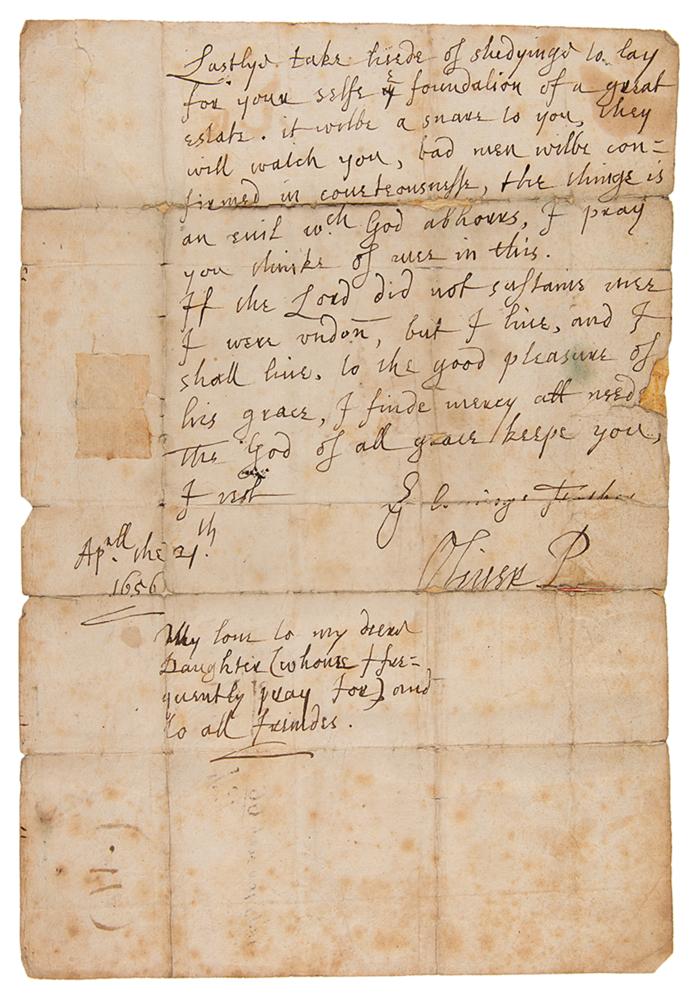 Lastly. take heede of studyinge to lay
for your selfe ye foundation of a great
estate. it wilbe a snare to you, they
will watch you, bad men wilbe con=
firmed in coueteousnesse, the thinge is
an evil wch God abhorrs, I pray
you thinke of mee in this.
If the Lord did not sustaine mee
I were vndon, but I liue, and I
shall liue, to the good pleasure of
his grace, I finde mercy att need
The God of all grace keepe you,
I rest
Yr louinge Father
Oliver P
Aprill the 21th
1656
My loue to my deere
Daughter (whome I fre=
quently pray for) and
to all freindes.